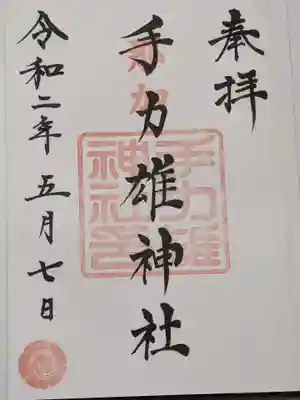 奉拝
手力雄神社
令和二年五月七日
手力雄
神社印